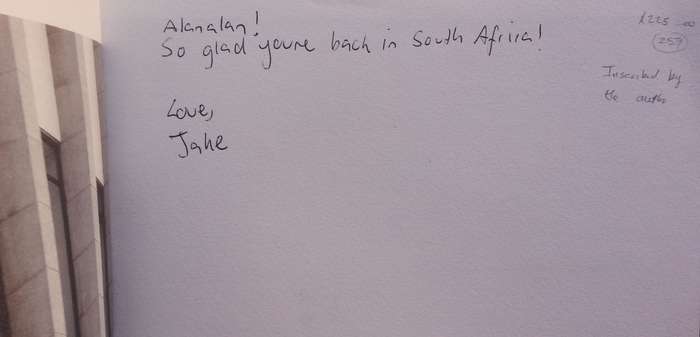 Alanalan!
So glad youre back in South Africa!
Love,
Jake
R225.00
(257)
Inscribed by
the author